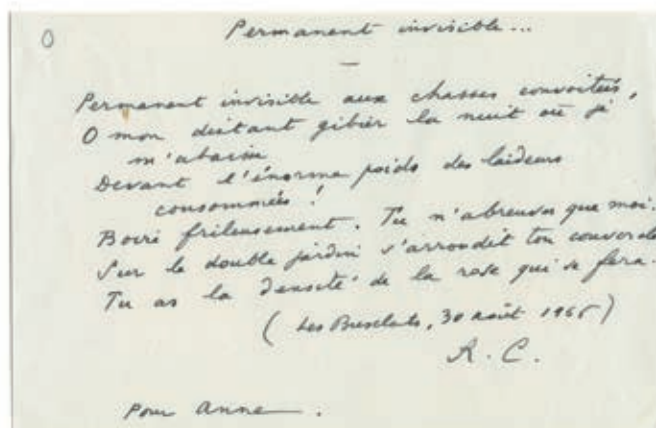 Permanent invisible...
Permanent invisible aux chasses convoitées,
O mon distant gibier la nuit où je
m'abaisse
Devant l'énorme poids des laideurs
consommées !
Boire frileusement. Tu n'abreuves que moi.
Sur le double jardin s'arrondit ton couvercle
Tu as la densité de la rose qui se fera.
(Les Busclats, 30 août 1966)
R. C.
Pour Anne.